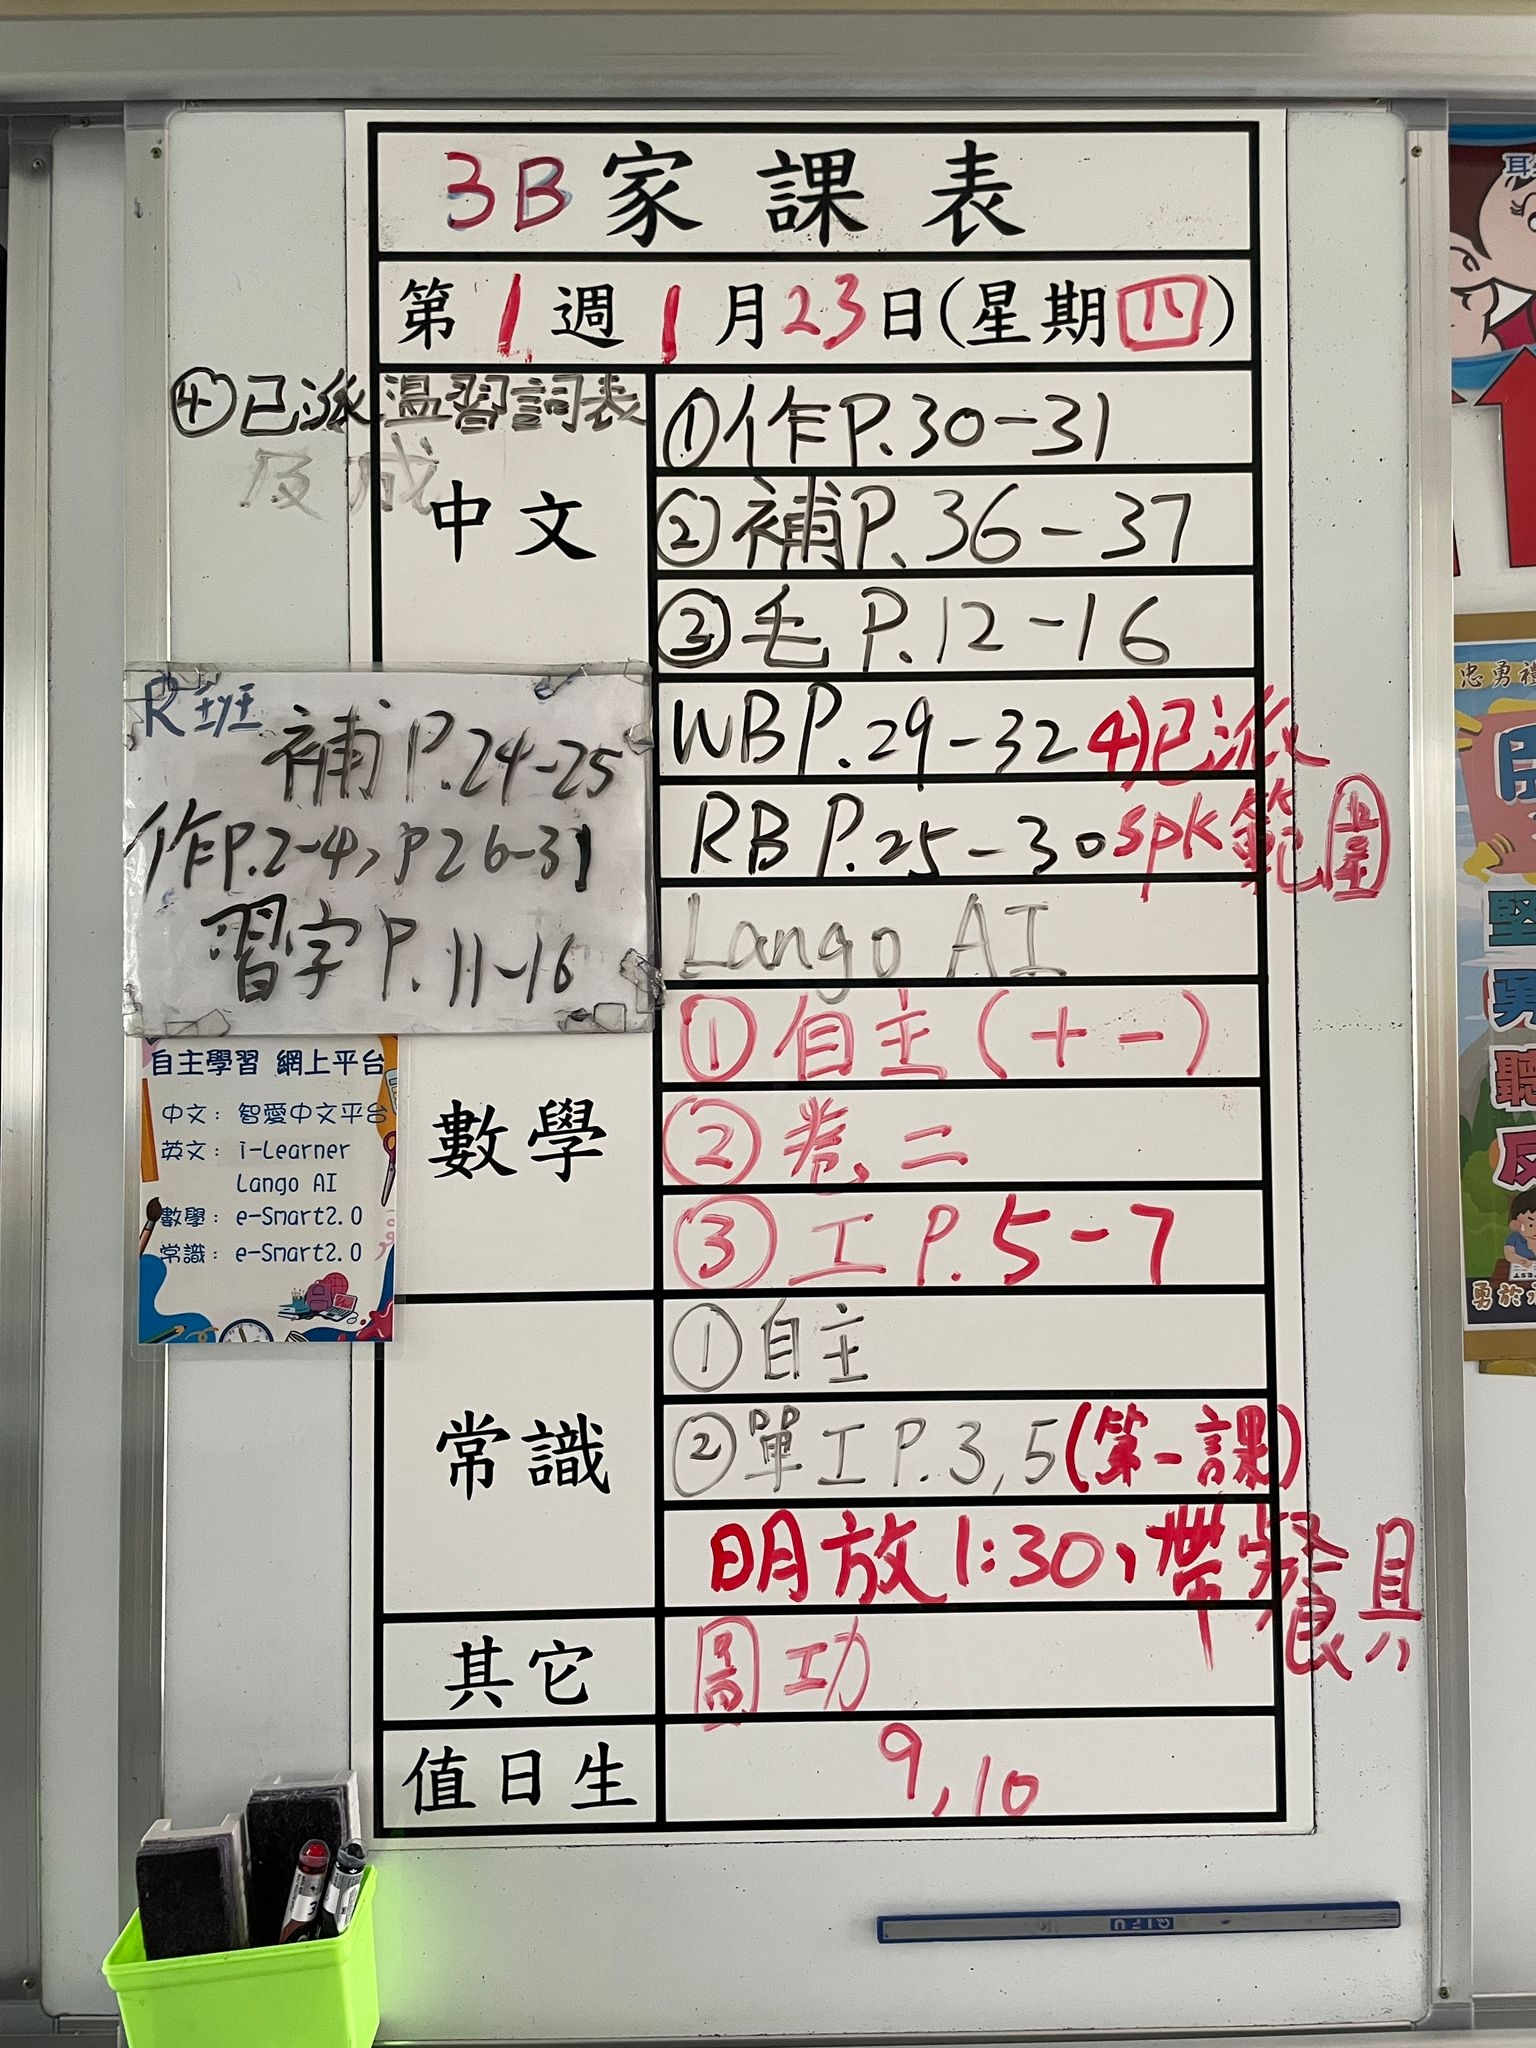 3B家課表
第1週1月23日(星期四)
④已派溫習詞表
及成
中文
①作P.30-31
②補P.36-37
③毛P.12-16
R班
補P.24-25
作P.2-4,P26-31
習字P.11-16
WBP.29-32 4)已派
RBP.25-30 spk範圍
Lango AI
自主學習 網上平台
中文：智愛中文平台
英文：i-Learner
Lango AI
數學：e-Smart2.0
常識：e-Smart2.0
數學
①自主(+-)
②卷二
③工P.5-7
常識
①自主
②單工P.3,5(第一課)
明放1:30,帶餐具
其它
圖工功
值日生
9,10
QIFU
忠勇禮
堅
勇
聽
反
勇於